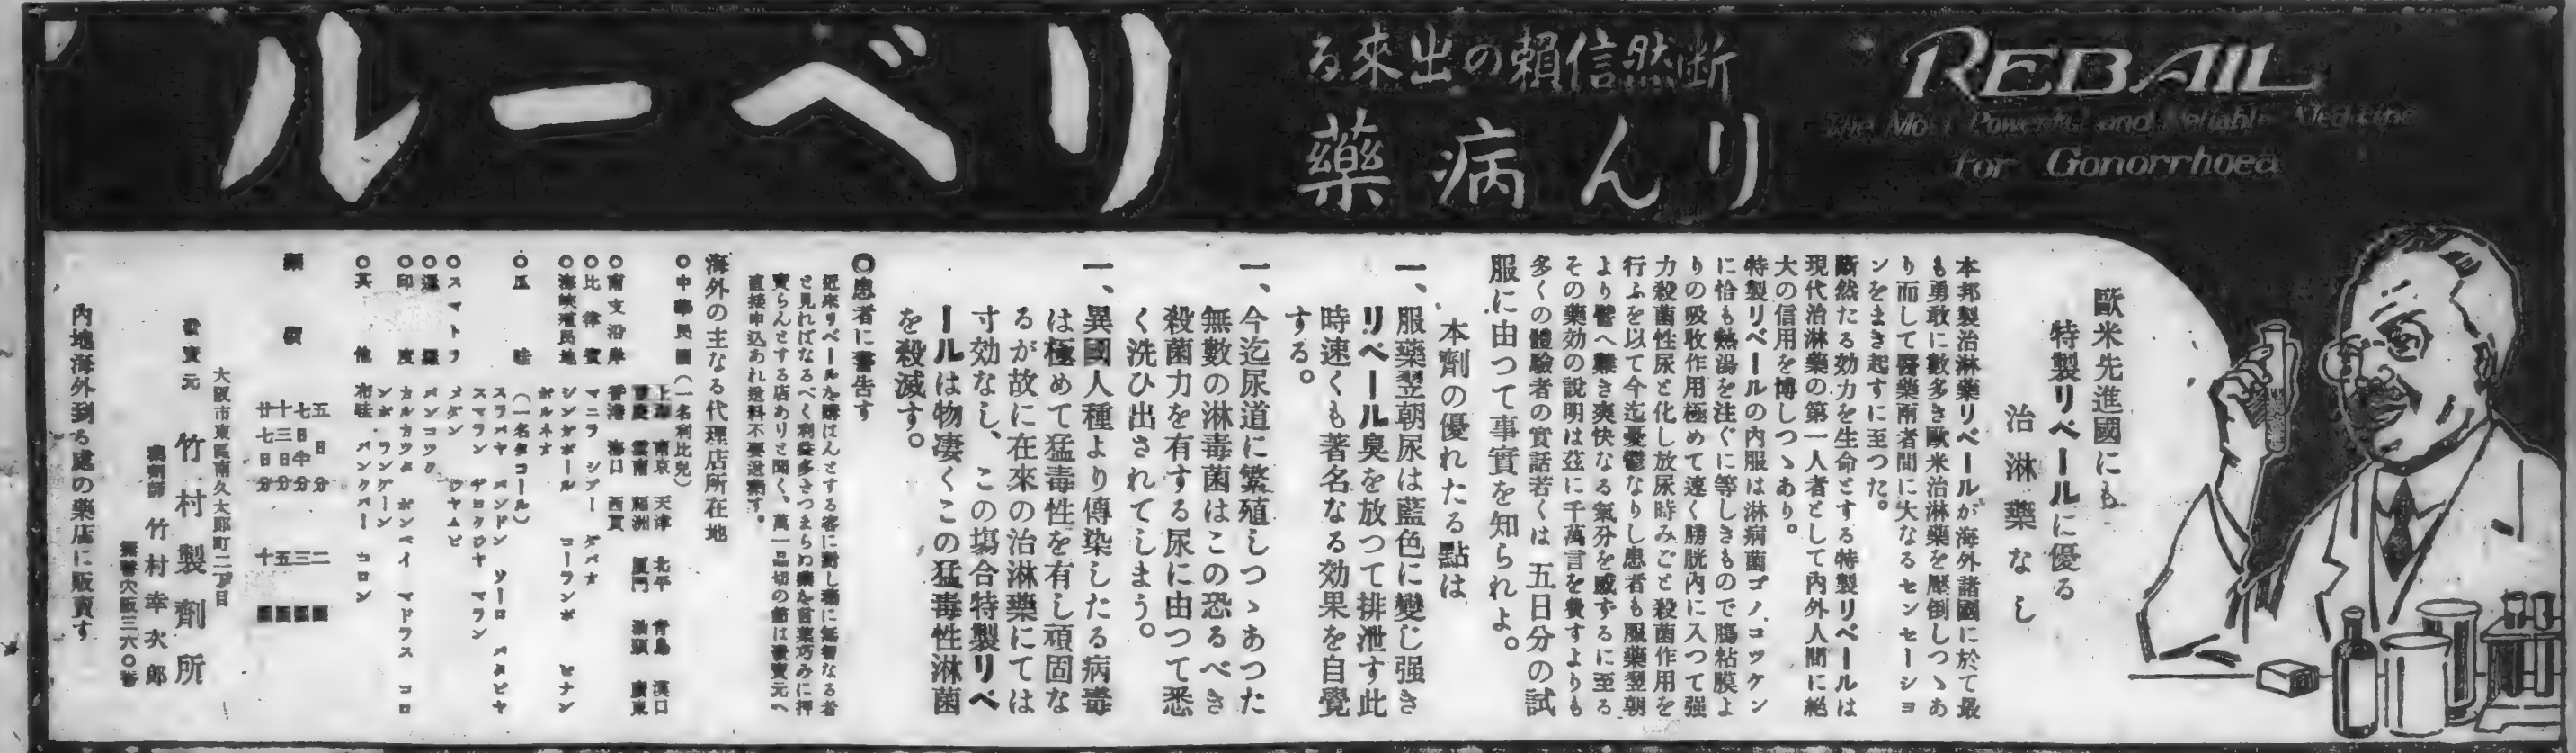 REBAIL
The Most Powerful and Reliable Medicine
for Gonorrhoea
る來出の賴信然斷
藥病んリ
ルーベリ
歐米先進國にも
特製リベールに優る
治淋藥なし
本邦製治淋藥リベールが海外諸國に於て最
も勇敢に數多き歐米治淋藥を壓倒しつゝあ
り而して醫藥兩者間に大なるセンセーショ
ンをまき起すに至つた。
斷然たる効力を生命とする特製リベールは
現代治淋藥の第一人者として內外人間に絕
大の信用を博しつゝあり。
特製リベールの內服は淋病菌ゴノコッケン
に恰も熱湯を注ぐに等しきもので膓粘膜よ
りの吸收作用極めて速く膀胱內に入つて强
力殺菌性尿と化し放尿時みごと殺菌作用を
行ふを以て今迄憂鬱なりし患者も服藥翌朝
より譬へ難き爽快なる氣分を感ずるに至る
その藥効の說明は玆に千萬言を費すよりも
多くの體驗者の實話若くは 五日分の試
服に由つて事實を知られよ。
本劑の優れたる點は
一、服藥翌朝尿は藍色に變じ强き
リベール臭を放つて排泄す此
時速くも著名なる効果を自覺
する。
一、今迄尿道に繁殖しつゝあつた
無數の淋毒菌はこの恐るべき
殺菌力を有する尿に由つて悉
く洗ひ出されてしまう。
一、異國人種より傳染したる病毒
は極めて猛毒性を有し頑固な
るが故に在來の治淋藥にては
寸効なし、この塲合特製リベ
ールは物凄くこの猛毒性淋菌
を殺滅す。
◎患者に警告す
近來リベールを購はんとする客に對し藥に無智なる者
と見ればなるべく利益多きつまらぬ藥を言葉巧みに押
賣らんとする店ありと聞く、萬一品切の節は發賣元へ
直接申込あれ送料不要送藥す。
海外の主なる代理店所在地
○中華民國(一名利比兒)
上海 南京 天津 北平 靑島 漢口
重慶 雲南 福洲 厦門 汕頭 廣東
○南支沿岸 香港 海口 西貢
○比律賓 マニラ シブー ダバオ
○海峽殖民地 シンガポール コーランポ ピナン
ボルネオ
○瓜哇 (一名タコール)
スラバヤ バンドン ソーロ バタビヤ
スマラン ヂョクジヤ マラン
○スマトラ メダン
○暹羅 バンコック
○印度 カルカッタ ボンベイ マドラス コロ
ンボ ラングーン
○其他 布哇 バンクバー コロン
藥價
五日分 二圓
七日半分 三圓
十三日分 五圓
廿七日分 十圓
大阪市東區南久太郎町二丁目
發賣元 竹村製劑所
藥劑師 竹村幸次郎
振替大阪三六〇番
內地海外到る處の藥店に販賣す